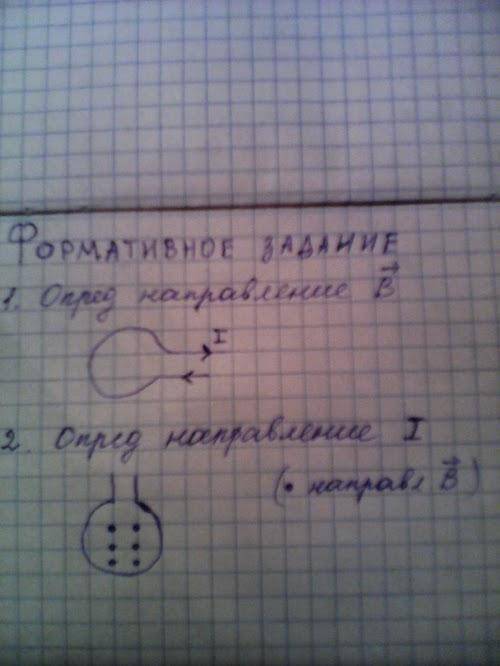 ФОРМАТИВНОЕ ЗАДАНИЕ
1. Опред направление B⃗
I
2. Опред направление I
(• направл B⃗)